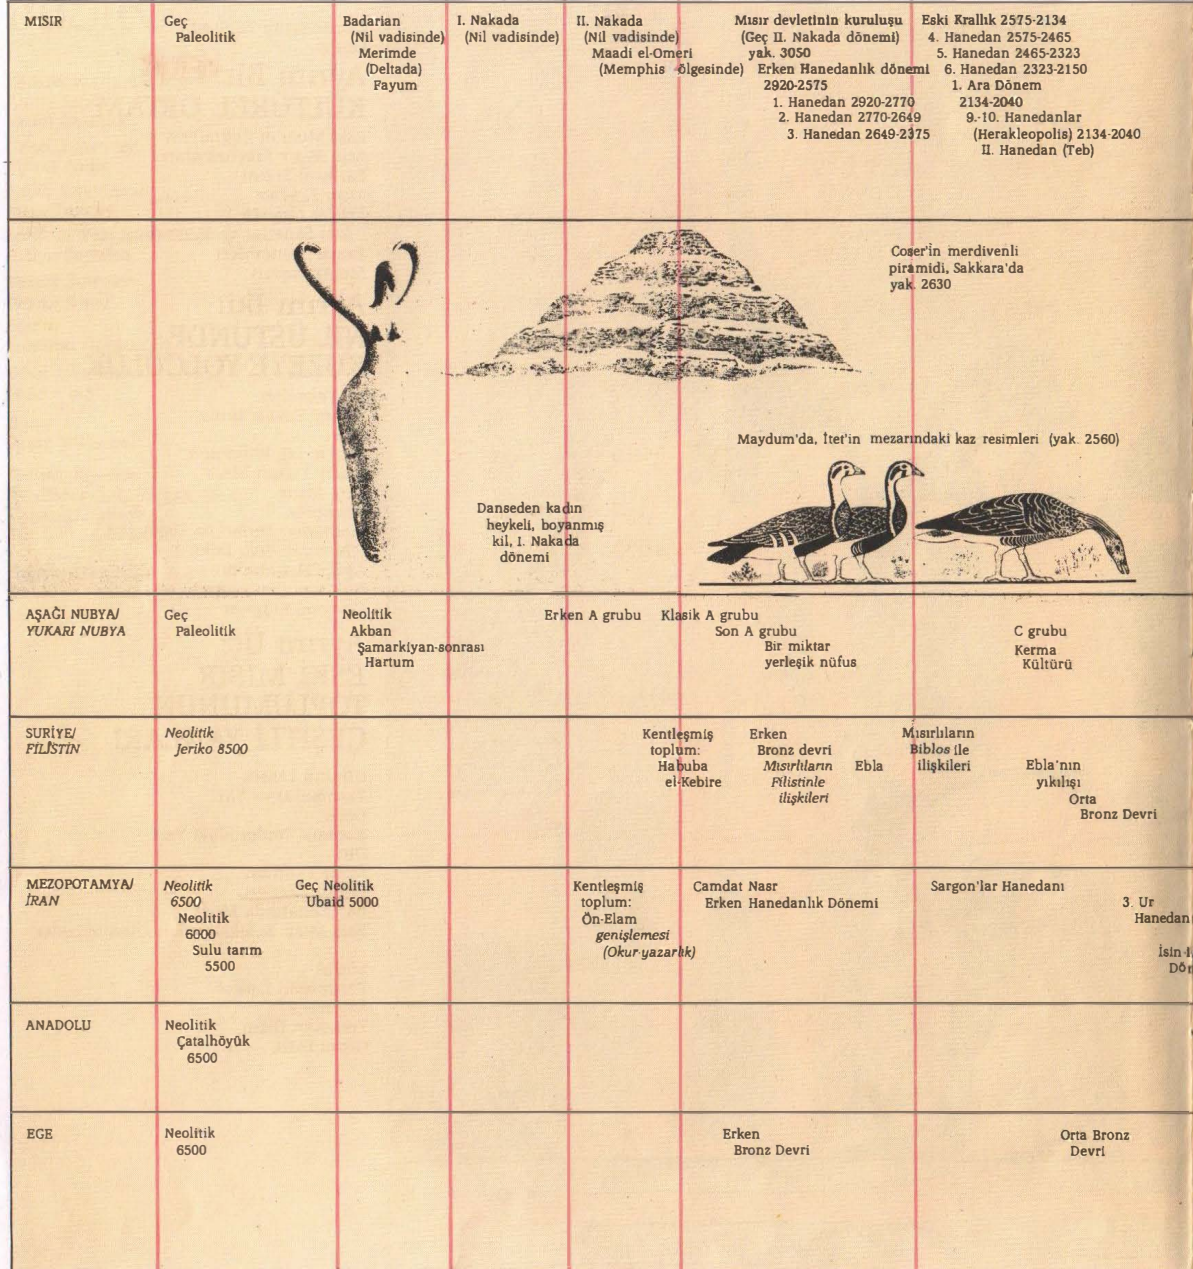 MISIR
Geç
Paleolitik
Badarian
(Nil vadisinde)
Merimde
(Deltada)
Fayum
I. Nakada
(Nil vadisinde)
II. Nakada
(Nil vadisinde)
Maadi el-Omeri
(Memphis ölgesinde)
Mısır devletinin kuruluşu
(Geç II. Nakada dönemi)
yak. 3050
Erken Hanedanlık dönemi
2920-2575
1. Hanedan 2920-2770
2. Hanedan 2770-2649
3. Hanedan 2649-2375
Eski Krallık 2575-2134
4. Hanedan 2575-2465
5. Hanedan 2465-2323
6. Hanedan 2323-2150
1. Ara Dönem
2134-2040
9.-10. Hanedanlar
(Herakleopolis) 2134-2040
II. Hanedan (Teb)
Coser'in merdivenli
piramidi, Sakkara'da
yak. 2630
Maydum'da, İtet'in mezarındaki kaz resimleri (yak. 2560)
Danseden kadın
heykeli, boyanmış
kil, I. Nakada
dönemi
AŞAĞI NUBYA/
YUKARI NUBYA
Geç
Paleolitik
Neolitik
Akban
Şamarkiyan-sonrası
Hartum
Erken A grubu
Klasik A grubu
Son A grubu
Bir miktar
yerleşik nüfus
C grubu
Kerma
Kültürü
SURİYE/
FİLİSTİN
Neolitik
Jeriko 8500
Kentleşmiş
toplum:
Habuba
el-Kebire
Erken
Bronz devri
Mısırlıların
Filistinle
ilişkileri
Ebla
Mısırlıların
Biblos ile
ilişkileri
Ebla'nın
yıkılışı
Orta
Bronz Devri
MEZOPOTAMYA/
İRAN
Neolitik
6500
Neolitik
6000
Sulu tarım
5500
Geç Neolitik
Ubaid 5000
Kentleşmiş
toplum:
Ön-Elam
genişlemesi
(Okur-yazarlık)
Camdat Nasr
Erken Hanedanlık Dönemi
Sargon'lar Hanedanı
3. Ur
Hanedan
İsin-
Dön
ANADOLU
Neolitik
Çatalhöyük
6500
EGE
Neolitik
6500
Erken
Bronz Devri
Orta Bronz
Devri